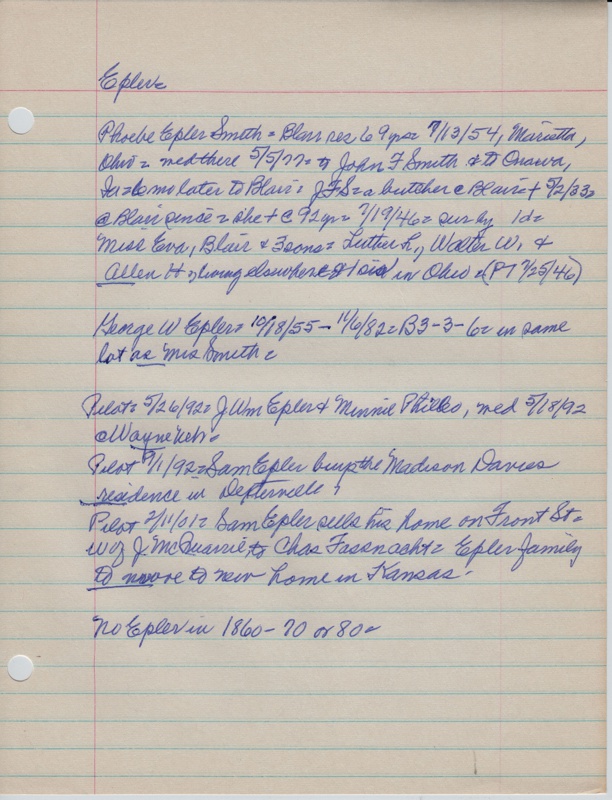 Epler=
Phoebe Epler Smith = Blair res 69 yrs= 7/13/54, Marietta,
Ohio = wed there 5/5/77= to John F Smith & to Onawa,
Ia=6 mo later to Blair= JFS= a butcher @ Blair= + 5/2/33=
@ Blair since = she + @ 92 yr= 7/19/46= sur by 1d=
Miss Eva, Blair & 3 sons= Luther L, Walter W. &
Allen H, living elsewhere & 1 sis in Ohio = (PT 7/25/46)
George W Epler= 10/18/55 - 11/6/82= B3-3-6= in same
lot as Mrs Smith=
Pilot= 5/26/92= J Wm Epler & Minnie Philleo, wed 5/18/92
@ Wayne Neb=
Pilot 9/1/92= Sam Epler buys the Madison Davies
residence in
Pilot 2/11/01= Sam Epler sells his home on Front St=
W of J. McQuarrie, to Chas Fassnacht= Epler family
to move to new home in Kansas-
No Epler in 1860-70 or 80=